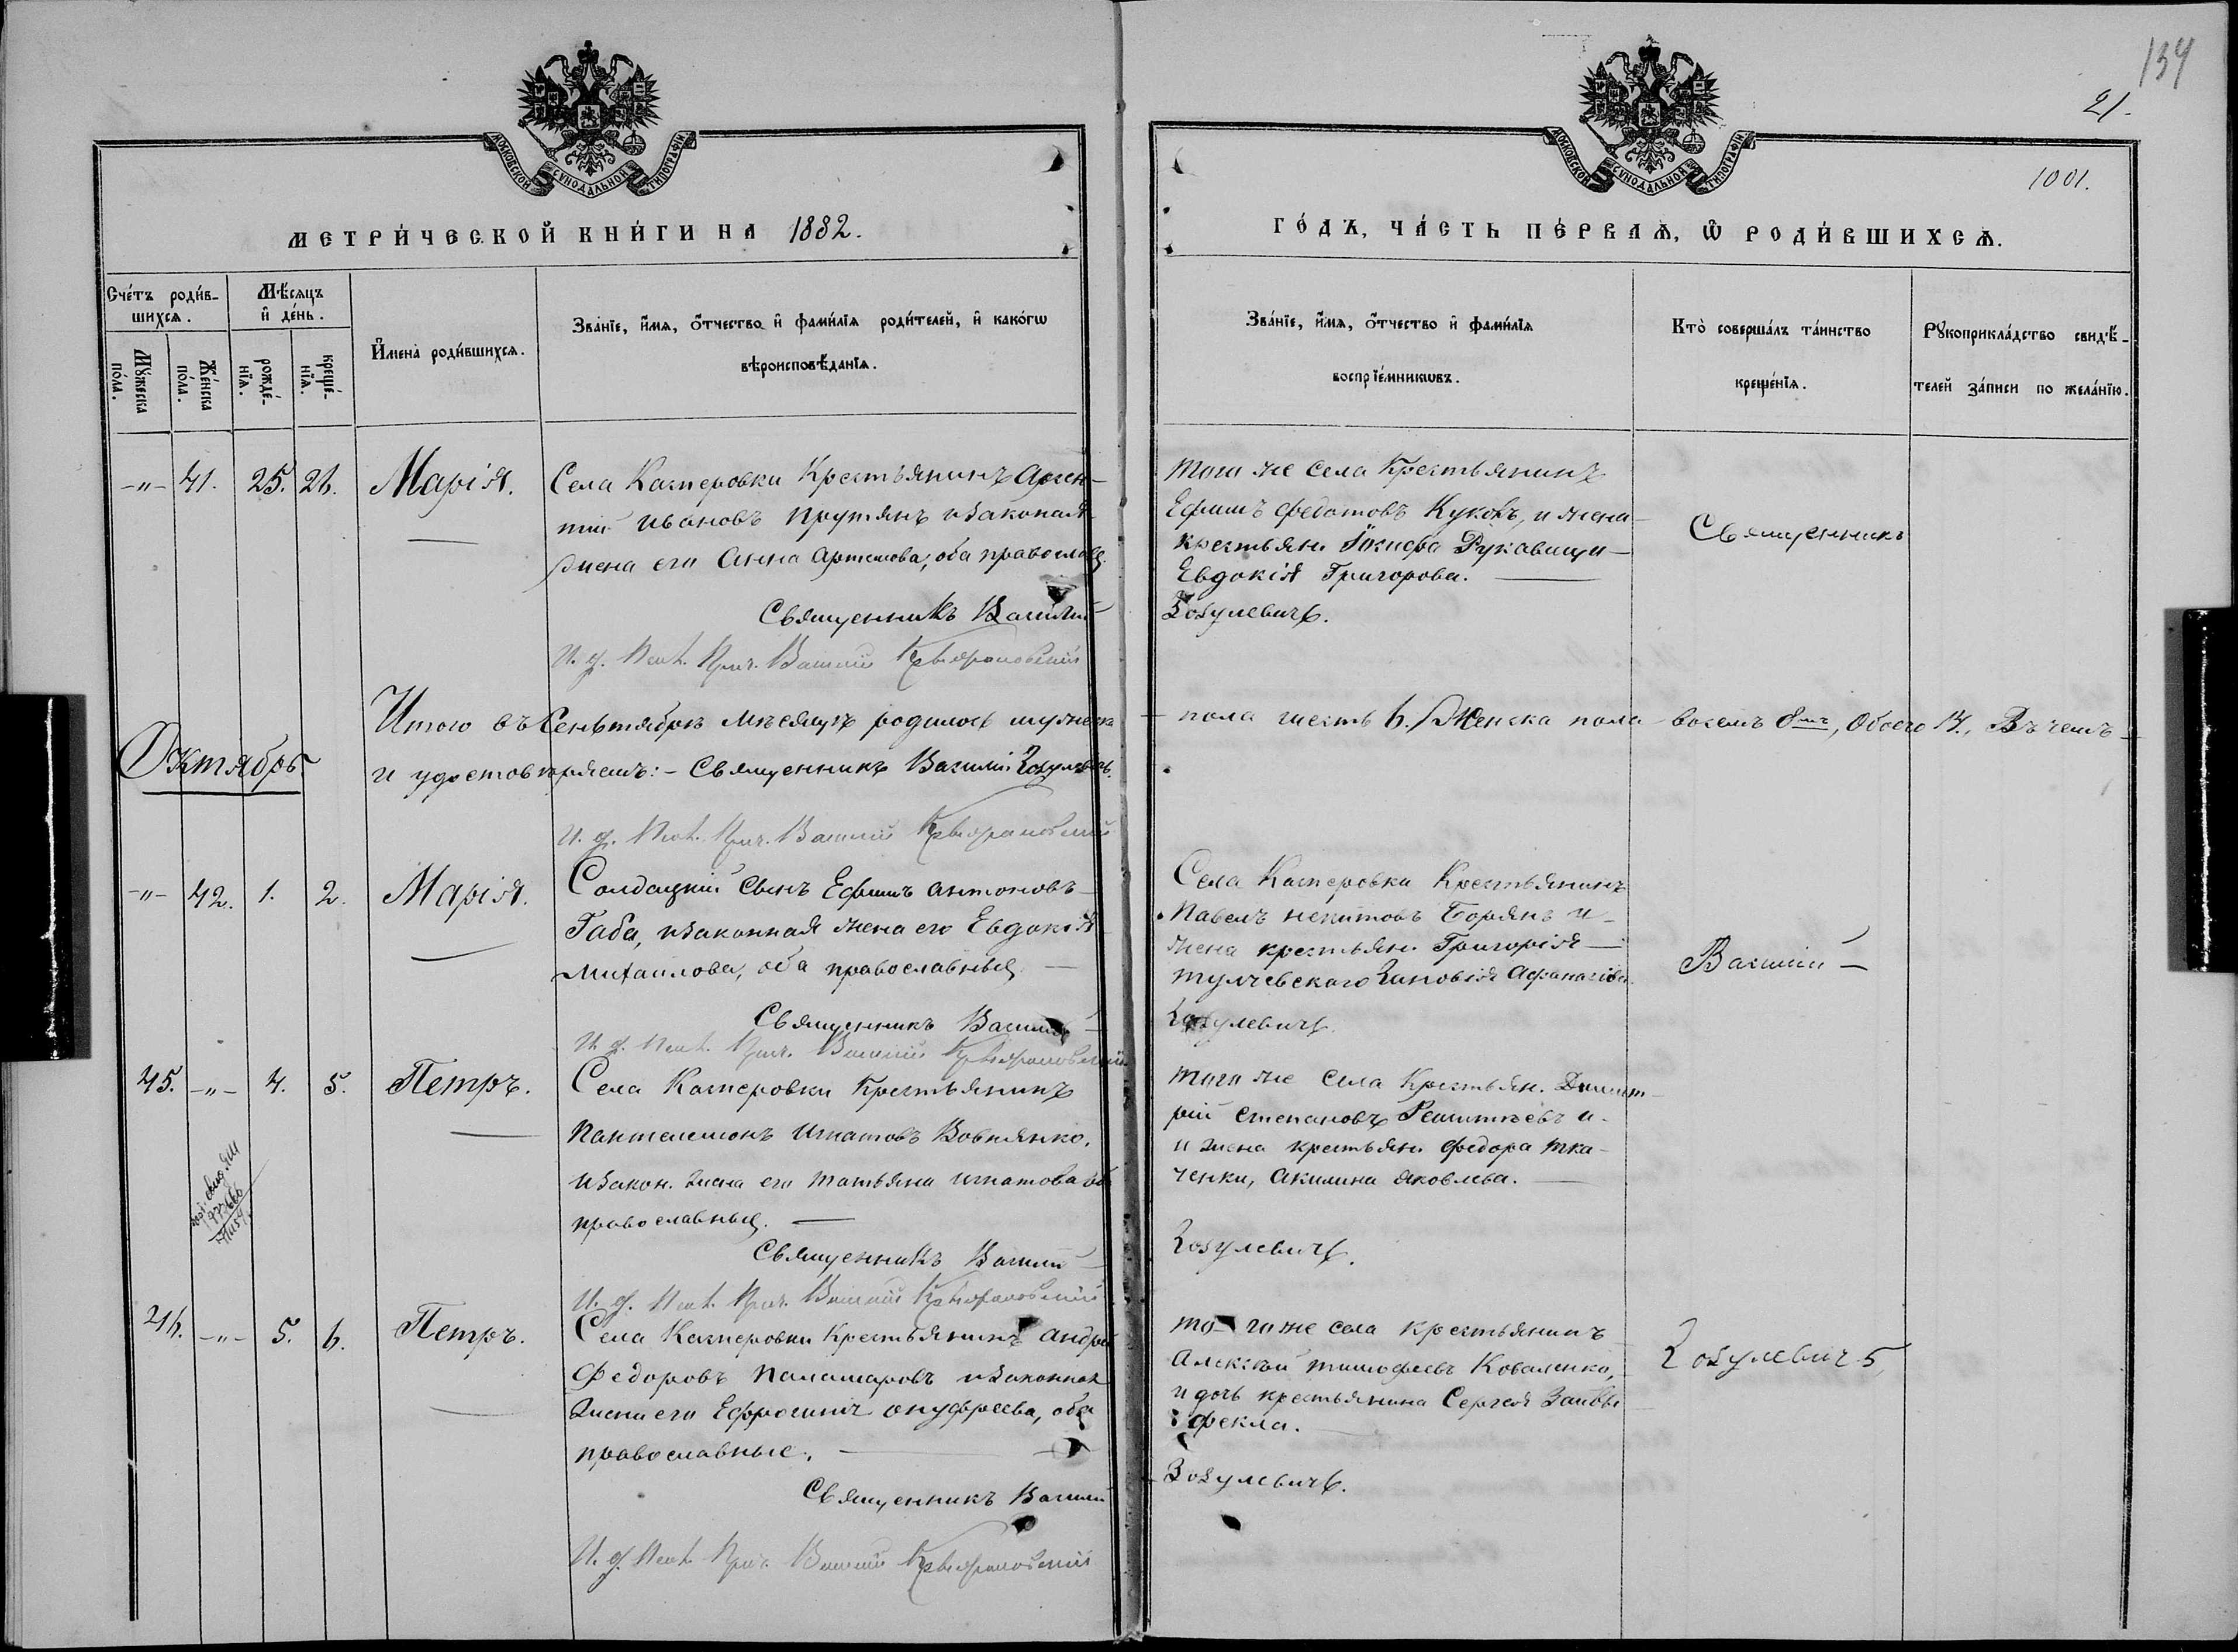 134
21.
1001.
МОСКОВСКОЙ СѴНОДАЛЬНОЙ ТИПОГРАФІИ
МОСКОВСКОЙ СѴНОДАЛЬНОЙ ТИПОГРАФІИ
МЕТРИ́ЧЕСКОЙ КНИ́ГИ НА 1882.
ГО́ДЪ, ЧА́СТЬ ПЕ́РВАѦ, Ѽ РОДИ́ВШИХСѦ.
Сче́тъ роди́в-
шихсѧ.
Мꙋжеска
по́ла.
Же́нска
по́ла.
Мѣ́сѧцъ
и̂ де́нь.
рожде́-
нїѧ.
креще́-
нїѧ.
И҆мена̀ роди́вшихсѧ.
Зва́нїе, и҆́мѧ, ѻ҆́тчество и̂ фами́лїѧ роди́телей, и̂ како́гѡ
вѣроисповѣ́данїѧ.
Зва́нїе, и҆́мѧ, ѻ҆́тчество и̂ фами́лїѧ
воспрїе́мникѡвъ.
Кто̀ соверша́лъ та́инство
креще́нїѧ.
Рꙋкоприкла́дство свидѣ́-
телей за́писи по жела́нїю.
-"- 41. 25. 26. Марія.
Села Каперовки Крестьянинъ Арсен-
тій Ивановъ Прутянъ и законая
жена его Анна Артемова, оба православ.
Священникъ Василій
И. д. Псал. Прич. Василій
того же села Крестьянинъ
Ефимъ Федотовъ Куковъ, и жена
крестьян.
Евдокія Григорова.
Зозулевичъ.
Священникъ
Итого въ Сентябрѣ мѣсяцѣ родилось мужеска
пола шесть 6. Женска пола восемъ 8мъ, Обоего 14., Въ чемъ
и удостовѣряемъ: - Священникъ Василій Зозулевичъ.
И. д. Псал. Прич. Василій
Октябрь
-"- 42. 1. 2. Марія.
Солдацкій сынъ Ефимъ Антоновъ
Габа, и законная жена его Евдокія
Михаилова, оба православные
Священникъ Василій
И. д. Псал. Прич. Василій
Села Каперовки Крестьянинъ
Павелъ Никитовъ Борянъ и
жена крестьян. Григорія
Тулчевскаго Зиновія Афанасіева
Зозулевичъ
Василій
45. -"- 4. 5. Петръ.
Села Каперовки Крестьянинъ
Пантелемонъ Игнатовъ Вовнянко,
и закон. жена его Татьяна Игнатова об
православные.
Священникъ Василій
И. д. Псал. Прич. Василій
того же села Крестьян. Димит-
рій Степановъ и
и жена крестьян. Федора Тка-
ченки, Акилина Яковлева.
Зозулевичъ.
46. -"- 5. 6. Петръ.
Села Каперовки Крестьянинъ Андрей
Федоровъ Паламаровъ и законная
жена его Ефросинія Онуфреева, оба
православные.
Священникъ Василій
И. д. Псал. Прич. Василій
того же села крестьянинъ
Алексѣй Тимофеевъ Коваленко,
и дочь крестьянина Сергея
Фекла.
Зозулевичъ.
Зозулевичъ